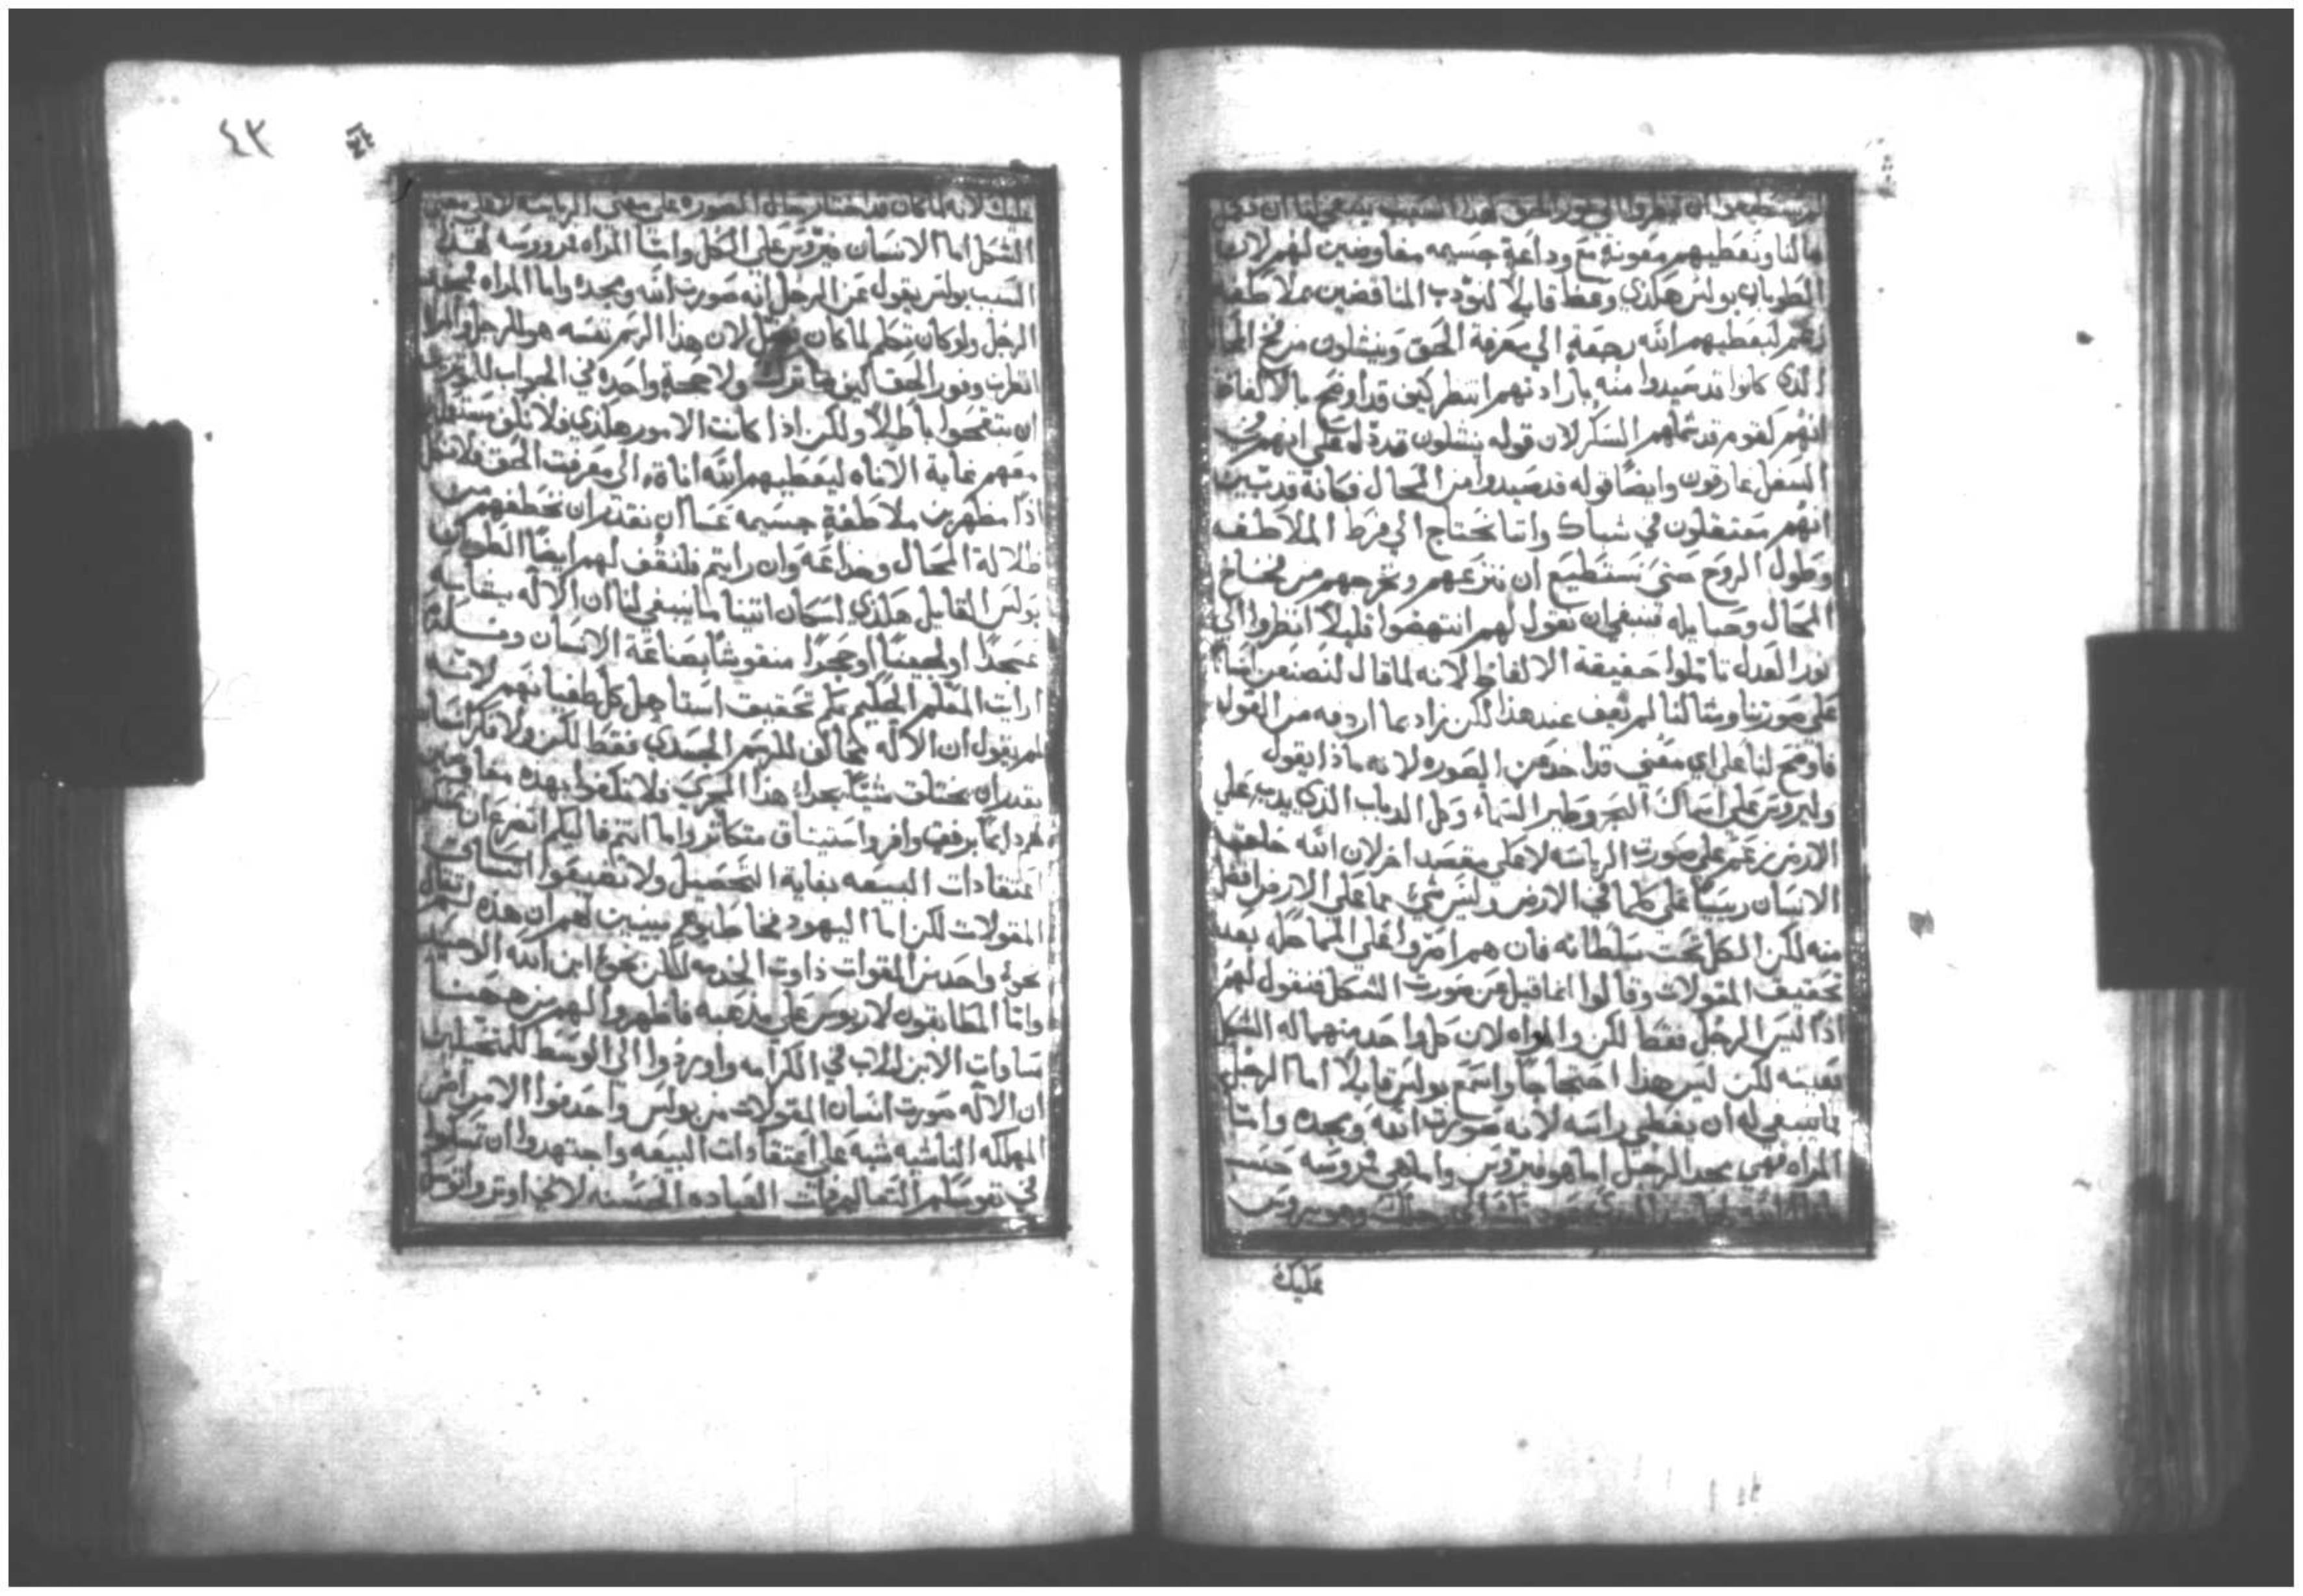 لم يستطيعوا ان ينظروا الي نور الحق لهذا السبب ينبغي لنا ان نبذل
مالنا ونعطيهم معونة مع وداعة جسيمه مفاوضين لهم لان
الطوباني بولس هكذي وعظ قايلا لنودب المناقضين بملاطفه
زعم ليعطيهم الله رجعة الي معرفة الحق وينشلون من فخ المحال
الذي كانوا قد صيدوا منه بارادتهم انتطر كيف قد اوضح بالالفاظ
انهم كقوم قد شملهم السكر لان قوله ينشلون قد دله علي انهم في
السفل غارقون وايضا قوله قد صيدوا من المحال فكانه قد بين
انهم معتقلون في شباك واننا نحتاج الي فرط الملاطفه
وطول الروح حتي نستطيع ان ننزعهم ونخرجهم من فخاخ
المحال وحبايله فينبغي ان نقول لهم انتهضوا قليلا انظروا الي
نور العدل تاملوا حقيقة الالفاظ لانه لما قال لنصنعن انسانا
علي صورتنا ومثالنا لم يقف عند هذا لكن زاد بما اردفه من القول
فاوضح لنا علي اي معني قد اخذ عن الصوره لانه ماذا يقول
وليروس علي اسماك البحر وطير السماء وكل الدباب الذي يدب علي
الارض زعم علي صورت الرياسه لا علي مقصد اخر لان الله خلق
الانسان رييسا علي كلما في الارض وليس شي مما علي الارض افضل
منه لكن الكل تحت سلطانه فان هم امتروا علي المماحكه بعد
تحقيق المقولات وقالوا انما قيل عن صورت الشكل فنقول لهم
اذا ليس الرجل فقط لكن والمراه لان كل واحد منهما له الشكل
بعينه لكن ليس هذا احتجاجا واسمع بولس قايلا اما الرجل
فما ينبغي له ان يغطي راسه لانه صورت الله ومجده واما
المراه فهي مجد الرجل اما هو فيروس واما هي فمروسه حسب
وهو يروس
عليك
٤٣
عليك لانه لما كان قد اختار يقال الصوره علي معني الرياسه لا علي معني
الشكل اما الانسان فيروس علي الكل واما المراه فمروسه لهذا
السبب بولس يقول عن الرجل انه صورت الله ومجده واما المراه فمجد
الرجل ولو كان تكلم لما كان فصل لان هذا الرسم نفسه هو للرجل والمراه
انظرت ونور الحق كيف ما ترك ولا حجة واحده في الجواب للموثرين
ان يتقحوا باطلا ولكن اذا كانت الامور هكذي فلا نلون مستعملين
معهم غاية الاناه ليعطيهم الله اناة الي معرفت الحق فلا نمل
اذا مظهرين ملاطفة جسيمه عسا ان نقدر ان نخطفهم من
ضلالة المحال وخداعه وان رايتم فلنقف لهم ايضا الطوباني
بولس القايل هكذي لسكان اثينا ما ينبغي لنا ان الاله يشابه
عسجدا او لجينا او حجرا منقوشا بصناعة الانسان
ارايت المعلم الحكيم بكم تحقيق استاصل كل طغيانهم لانه
لم يقول ان الاله يحاكي للرسم الجسدي فقط لكن ولا فكر انسان
يقدر ان يختلق شيا بحذا هذا المجرب فلا تكفوا بهذه مفاوضين
لهم دايما برفق وافر واستيناق متكاثر واما انتم فاليكم اتضرع ان
اعتقادات البيعه بغاية التحصيل ولا تضيقوا اتساق
المقولات لكن اما اليهود فخاطبوهم مبينين لهم ان هذه لم تقال
نحو واحد من القوات ذاوت الخدمه لكن نحو ابن الله الوحيد
واما المطابقون لاريوس علي مذهبه فاظهروا لهم من ههنا
مساوات الابن للاب في الكرامه واوردوا الي الوسط للمتخيلين
ان الاله صورت انسان المقولات من بولس واحدفوا الامراض
المهلكه الناشيه شبه علي اعتقادات البيعه واجتهدوا ان تسلموا
في نفوسكم التعاليم ذات العباده الحسنه لاني اوثر واتوسل